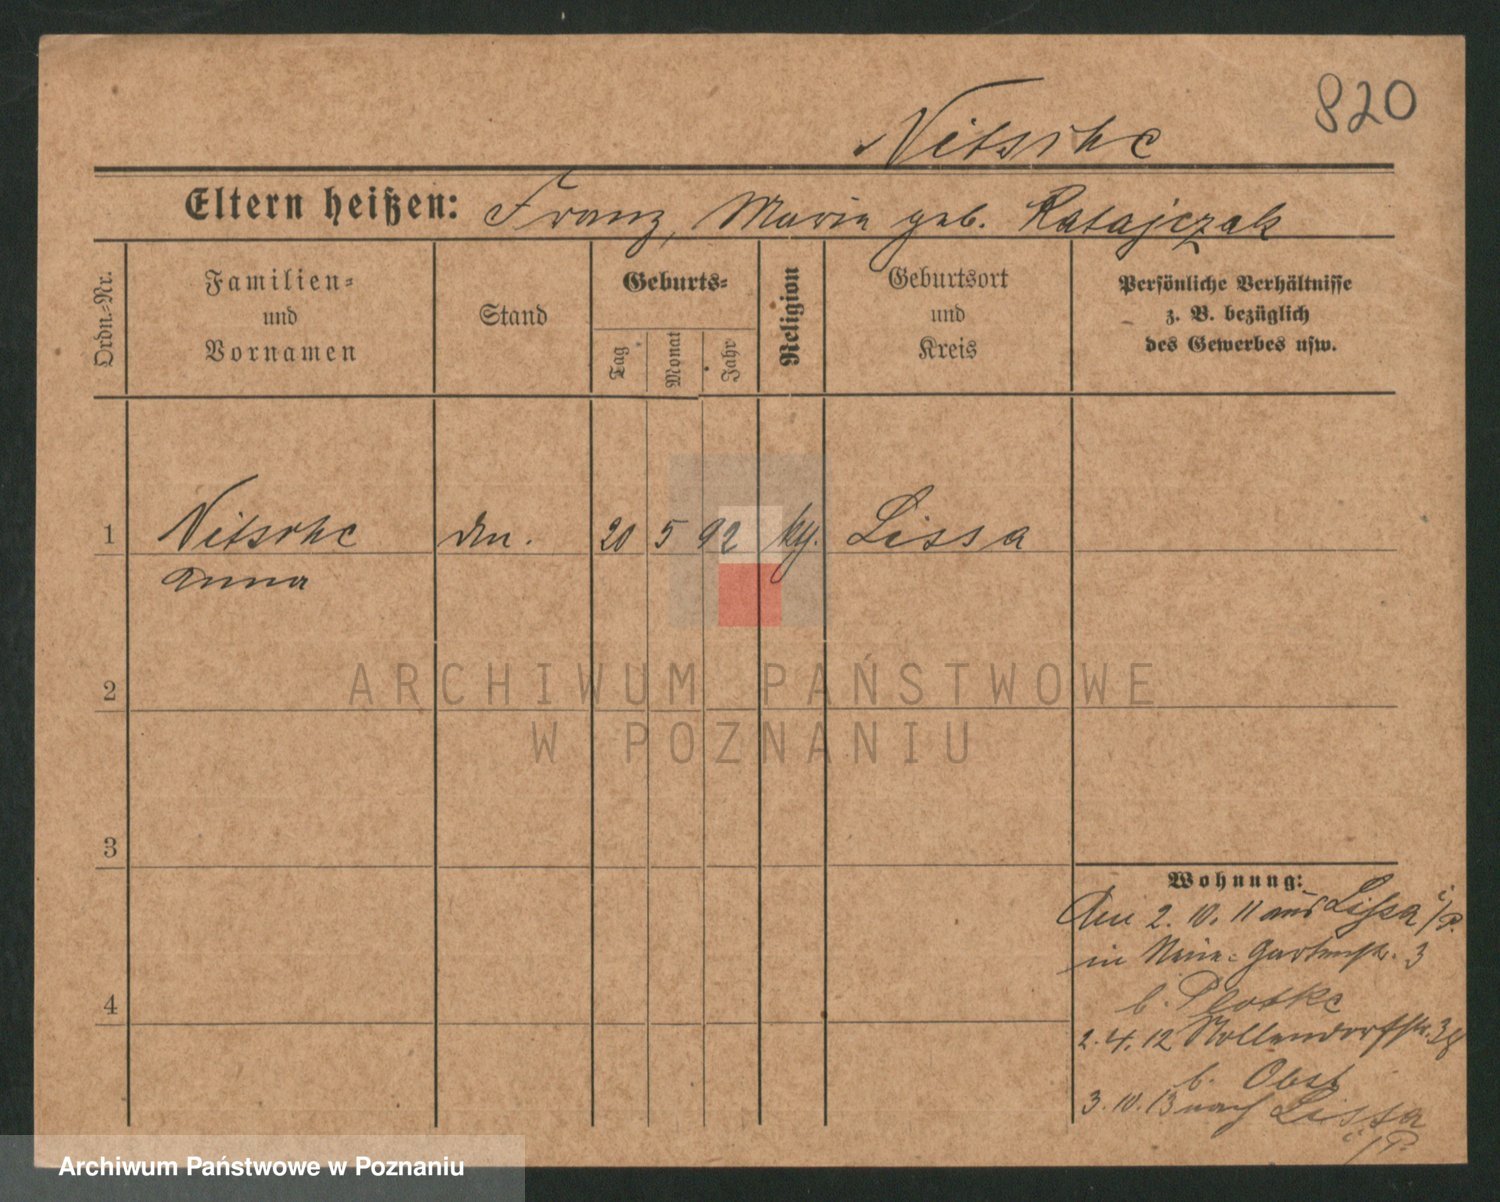 820
Nitsche
Eltern heißen: Franz, Marie geb. Ratajczak
Ordn.-Nr.
Familien-
und
Vornamen
Stand
Geburts-
Tag
Monat
Jahr
Religion
Geburtsort
und
Kreis
Persönliche Verhältnisse
z. B. bezüglich
des Gewerbes usw.
1 Nitsche 20 5 92 Lissa
Anna
2
ARCHIWUM PAŃSTWOWE
W POZNANIU
3
Wohnung:
2. 10. 11 aus Lissa i/P.
in Neue-Gartenstr. 3
b. Plotke
4
2. 4. 12 Nollendorfstr.
b. Obst
3. 10. 13 nach Lissa
i/P.
Archiwum Państwowe w Poznaniu